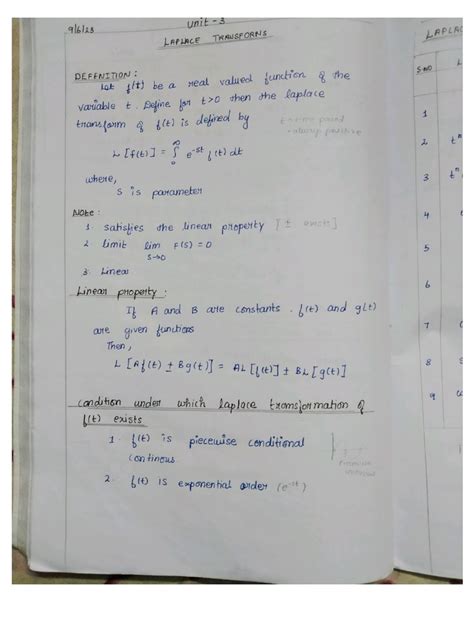 9/6/23
Unit - 3
LAPLACE TRANSFORMS
DEFENITION:
Let f(t) be a real valued function of the
variable t. Define for t>0 then the laplace
transform of f(t) is defined by
t → time period
- always positive
L [f(t)] = ∫₀^∞ e^-st f(t) dt
where,
S is parameter
Note:
1. satisfies the linear property [± exists]
2 limit lim F(s) = 0
S→0
3. Linear
Linear property.
If A and B are constants. f(t) and g(t)
are given functions
Then,
L [Af(t) ± Bg(t)] = AL [f(t)] ± BL [g(t)]
condition under which laplace transformation of
f(t) exists
1. f(t) is piecewise conditional
continous
2. f(t) is exponential order (e^-st)
LAPLAC
S.NO
1
2 t^n
3 t^n
4
5
6
7
8
9